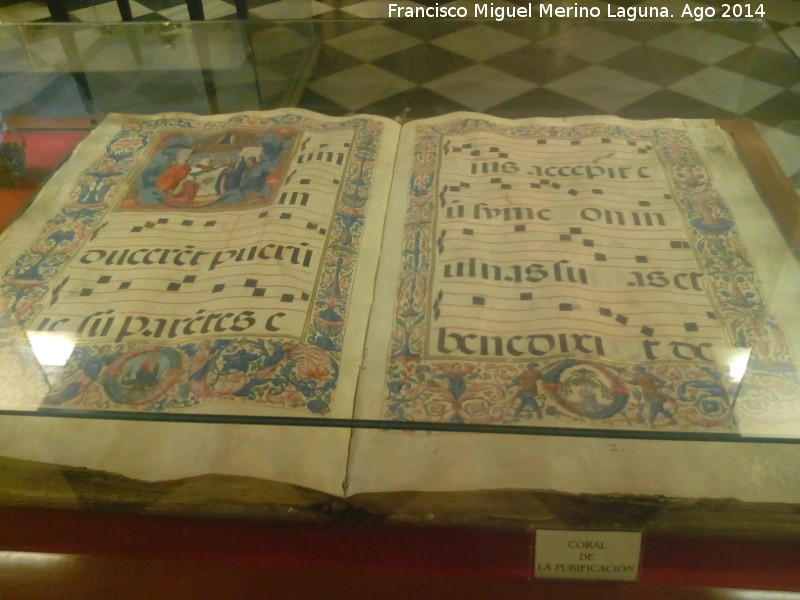 Francisco Miguel Merino Laguna. Ago 2014
um
in
ducerēt puerū
ie sū parētes e
ius accepit e
ū syme on in
ulnas su as et
benedixi t de
CORAL
DE
LA PURIFICACIÓN